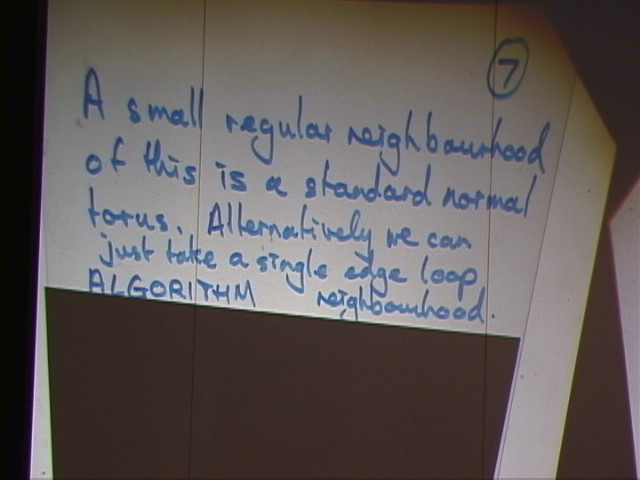 7
A small regular neighbourhood
of this is a standard normal
torus. Alternatively we can
just take a single edge loop
neighbourhood.
ALGORITHM